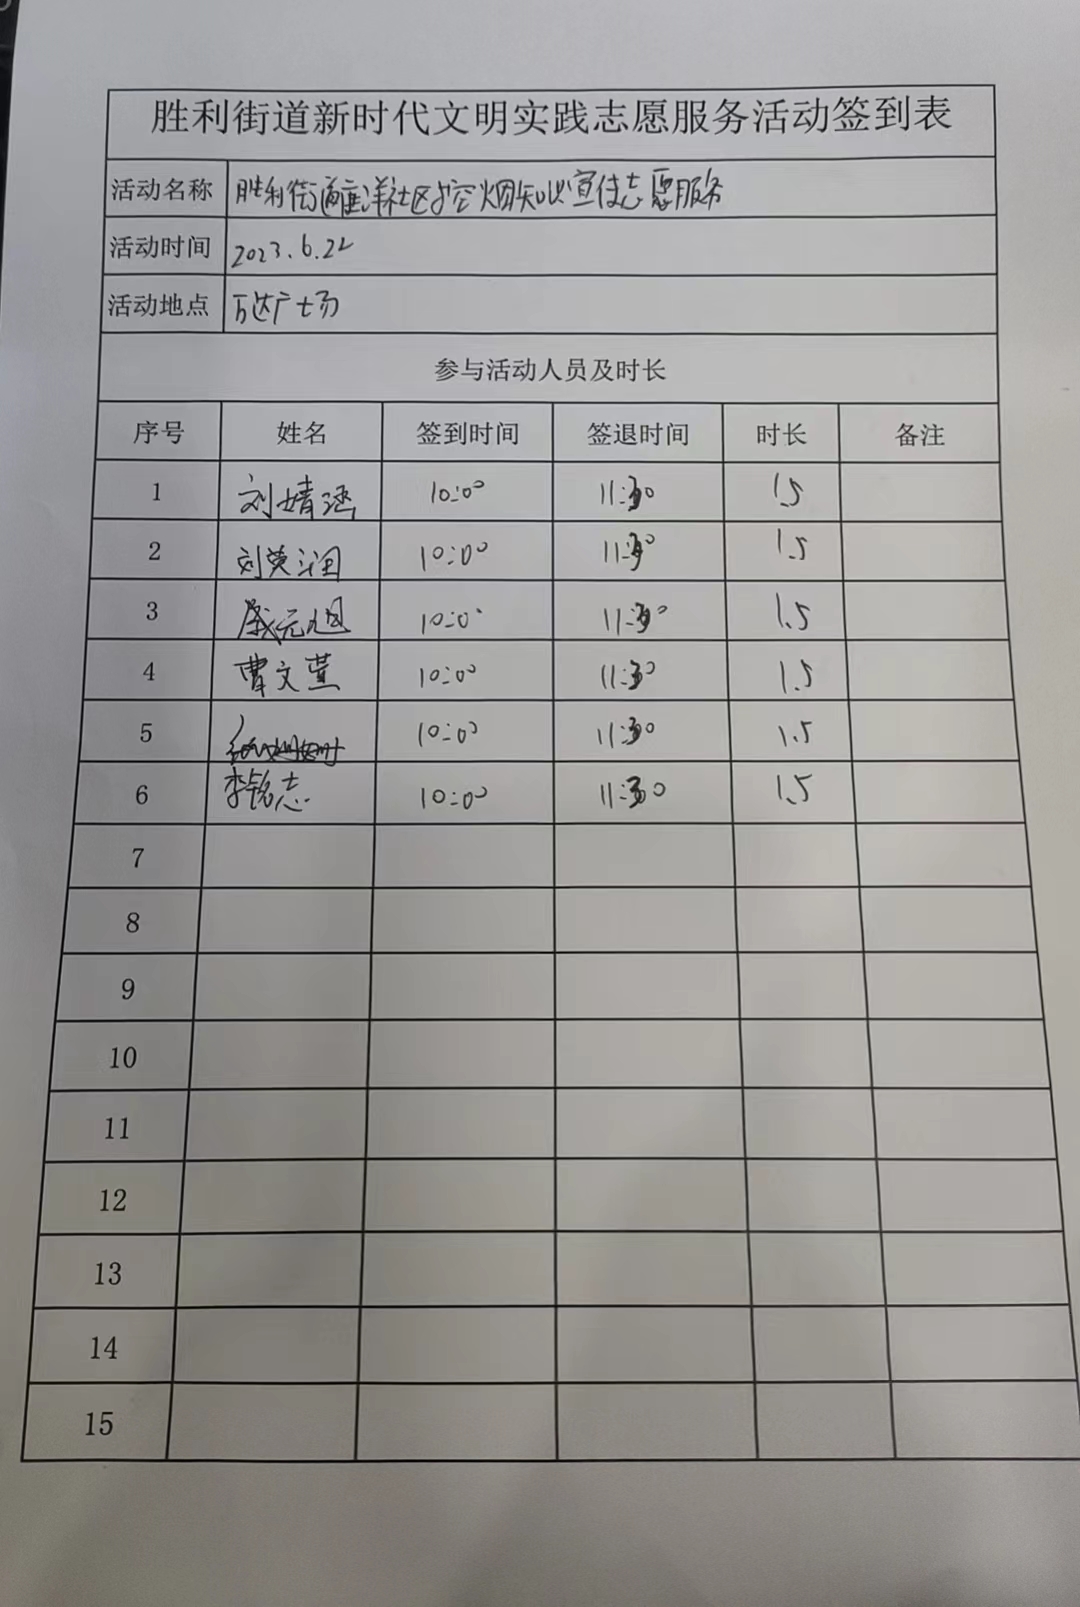 胜利街道新时代文明实践志愿服务活动签到表
活动名称 胜利街道垂洋社区控烟知识宣传志愿服务
活动时间 2023.6.22
活动地点 万达广场
参与活动人员及时长
序号 姓名 签到时间 签退时间 时长 备注
1 刘婧涵 10:00 11:30 1.5
2 刘英润 10:00 11:30 1.5
3 戚元旭 10:00 11:30 1.5
4 曹文萱 10:00 11:30 1.5
5 10:00 11:30 1.5
6 李铭志 10:00 11:30 1.5
7
8
9
10
11
12
13
14
15